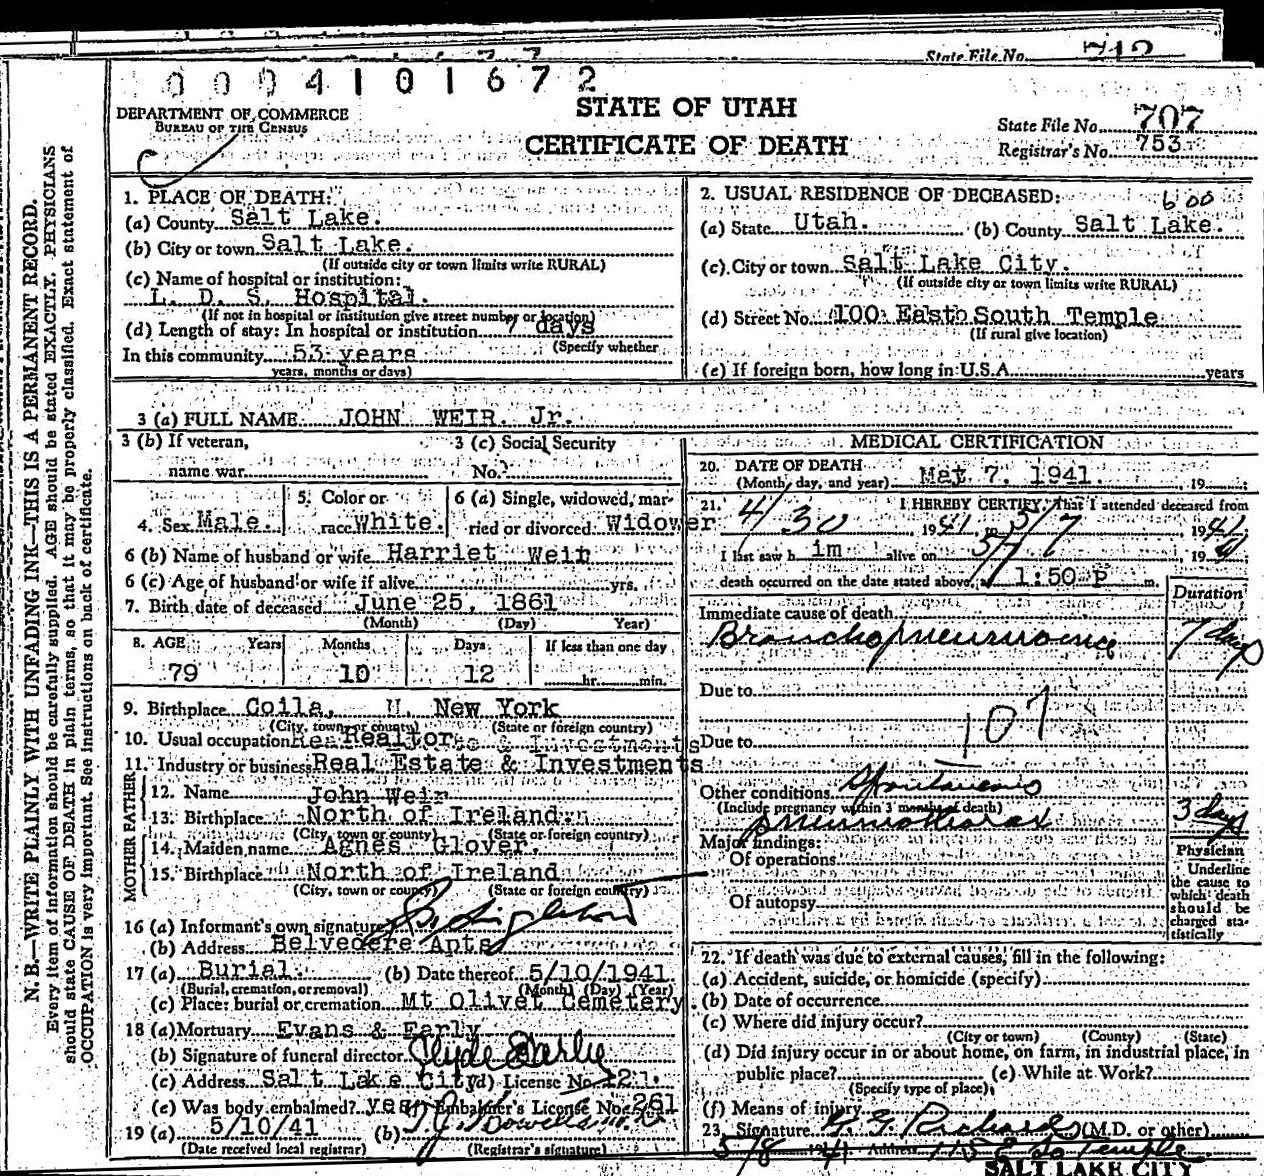 State File No. 712
0004101672
DEPARTMENT OF COMMERCE
BUREAU OF THE CENSUS
STATE OF UTAH
CERTIFICATE OF DEATH
State File No. 707
Registrar's No. 753
N. B.—WRITE PLAINLY WITH UNFADING INK—THIS IS A PERMANENT RECORD.
Every item of information should be carefully supplied. AGE should be stated EXACTLY. PHYSICIANS
should state CAUSE OF DEATH in plain terms, so that it may be properly classified. Exact statement of
OCCUPATION is very important. See instructions on back of certificate.
1. PLACE OF DEATH:
(a) County Salt Lake.
(b) City or town Salt Lake.
(If outside city or town limits write RURAL)
(c) Name of hospital or institution:
L. D. S. Hospital.
(If not in hospital or institution give street number or location)
(d) Length of stay: In hospital or institution 7 days
(Specify whether
In this community 53 years
years, months or days)
2. USUAL RESIDENCE OF DECEASED: 6 00
(a) State Utah. (b) County Salt Lake.
(c) City or town Salt Lake City.
(If outside city or town limits write RURAL)
(d) Street No. 100 East South Temple
(If rural give location)
(e) If foreign born, how long in U.S.A. years
3 (a) FULL NAME JOHN WEIR. Jr.
3 (b) If veteran, 3 (c) Social Security
name war No.
4. Sex Male. 5. Color or race White. 6 (a) Single, widowed, married or divorced Widower
6 (b) Name of husband or wife Harriet Weir
6 (c) Age of husband or wife if alive yrs.
7. Birth date of deceased June 25, 1861
(Month) (Day) Year)
8. AGE Years Months Days If less than one day
79 10 12 hr. min.
9. Birthplace Coila, N. New York
(City, town or county) (State or foreign country)
10. Usual occupation Realtor
11. Industry or business Real Estate & Investments
FATHER
12. Name John Weir
13. Birthplace North of Ireland
(City, town or county) (State or foreign country)
MOTHER
14. Maiden name Agnes Glover.
15. Birthplace North of Ireland
(City, town or county) (State or foreign country)
16 (a) Informant's own signature
(b) Address Belvedere Apts
17 (a) Burial. (b) Date thereof 5/10/1941
(Burial, cremation, or removal) (Month) (Day) (Year)
(c) Place: burial or cremation Mt Olivet Cemetery.
18 (a) Mortuary Evans & Early
(b) Signature of funeral director Clyde Early
(c) Address Salt Lake City (d) License No. 121.
(e) Was body embalmed? yes (f) Embalmer's License No. 261
19 (a) 5/10/41 (b)
(Date received local registrar) (Registrar's signature)
MEDICAL CERTIFICATION
20. DATE OF DEATH
(Month, day, and year) Mat 7, 1941. 19
21. I HEREBY CERTIFY, That I attended deceased from
4/30 1941 to 5/7, 1941
I last saw him alive on 5/7 1941
death occurred on the date stated above, at 1:50 P m.
Duration
Immediate cause of death
Bronchopneumonia 7 days
Due to
107
Due to
Other conditions Spontaneous
(Include pregnancy within 3 months of death)
pneumothorax 3 days
Major findings:
Of operations
Of autopsy
Physician
Underline
the cause to
which death
should be
charged sta-
tistically
22. If death was due to external causes, fill in the following:
(a) Accident, suicide, or homicide (specify)
(b) Date of occurrence
(c) Where did injury occur?
(City or town) (County) (State)
(d) Did injury occur in or about home, on farm, in industrial place, in
public place? (e) While at Work?
(Specify type of place)
(f) Means of injury
23. Signature G. G. Richards (M.D. or other)
5/8 1941 Address 115 E So Temple
SALT LAKE CITY